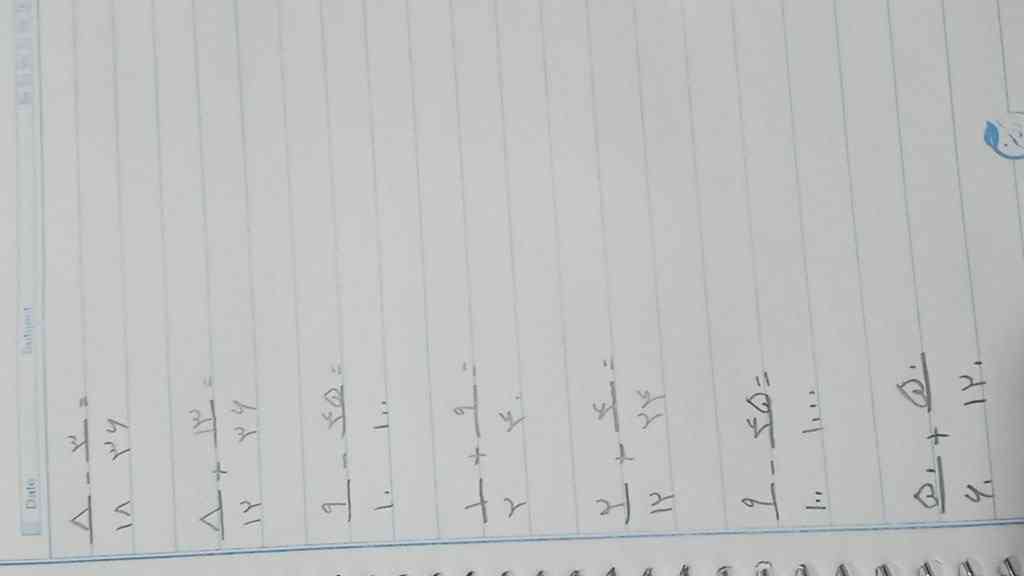 Date Subject
۸/۱۸ - ۳/۳۶ =
۸/۱۲ + ۱۳/۳۶ =
۹/۱۰ - ۴۵/۱۰۰ =
۱/۲ + ۹/۴۰ =
۲/۱۲ + ۴/۲۴ =
۹/۱۰۰ - ۴۵/۱۰۰۰ =
۵۰/۶۰ + ۵۰/۱۲۰